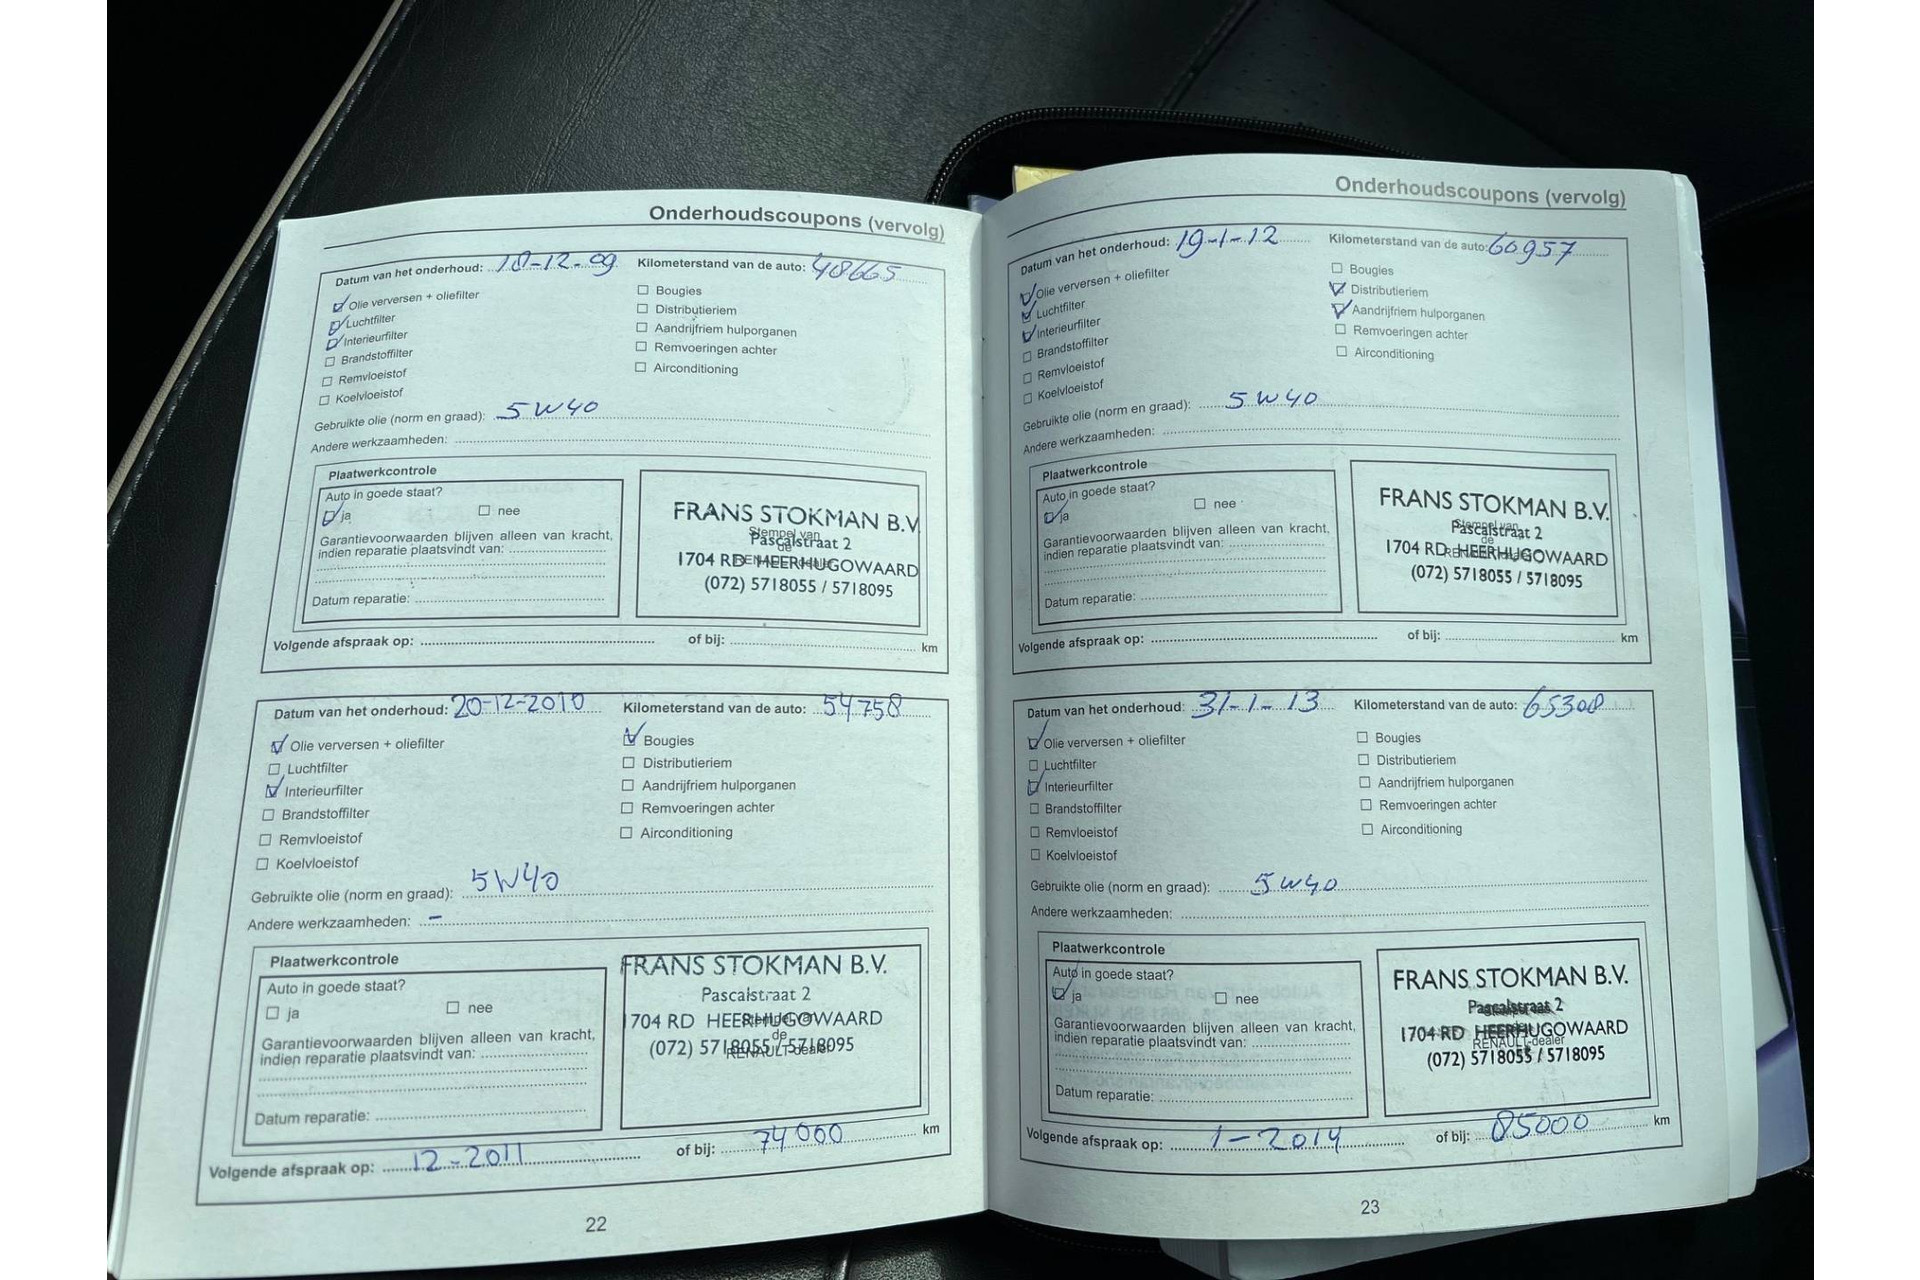 Onderhoudscoupons (vervolg)
Datum van het onderhoud: 18-12-09 Kilometerstand van de auto: 48665
Olie verversen + oliefilter
Luchtfilter
Interieurfilter
Brandstoffilter
Remvloeistof
Koelvloeistof
Bougies
Distributieriem
Aandrijfriem hulporganen
Remvoeringen achter
Airconditioning
Gebruikte olie (norm en graad): 5W40
Andere werkzaamheden:
Plaatwerkcontrole
Auto in goede staat?
ja nee
Garantievoorwaarden blijven alleen van kracht,
indien reparatie plaatsvindt van:
Datum reparatie:
FRANS STOKMAN B.V.
Stempel van
Pascalstraat 2
de
1704 RD HEERHUGOWAARD
RENAULT-dealer
(072) 5718055 / 5718095
Volgende afspraak op: of bij: km
Datum van het onderhoud: 20-12-2010 Kilometerstand van de auto: 54758
Olie verversen + oliefilter
Luchtfilter
Interieurfilter
Brandstoffilter
Remvloeistof
Koelvloeistof
Bougies
Distributieriem
Aandrijfriem hulporganen
Remvoeringen achter
Airconditioning
Gebruikte olie (norm en graad): 5W40
Andere werkzaamheden: -
Plaatwerkcontrole
Auto in goede staat?
ja nee
Garantievoorwaarden blijven alleen van kracht,
indien reparatie plaatsvindt van:
Datum reparatie:
FRANS STOKMAN B.V.
Pascalstraat 2
Stempel van
1704 RD HEERHUGOWAARD
de
(072) 5718055 / 5718095
RENAULT-dealer
Volgende afspraak op: 12-2011 of bij: 74000 km
22
Onderhoudscoupons (vervolg)
Datum van het onderhoud: 19-1-12 Kilometerstand van de auto: 60957
Olie verversen + oliefilter
Luchtfilter
Interieurfilter
Brandstoffilter
Remvloeistof
Koelvloeistof
Bougies
Distributieriem
Aandrijfriem hulporganen
Remvoeringen achter
Airconditioning
Gebruikte olie (norm en graad): 5W40
Andere werkzaamheden:
Plaatwerkcontrole
Auto in goede staat?
ja nee
Garantievoorwaarden blijven alleen van kracht,
indien reparatie plaatsvindt van:
Datum reparatie:
FRANS STOKMAN B.V.
Stempel van
Pascalstraat 2
de
1704 RD HEERHUGOWAARD
RENAULT-dealer
(072) 5718055 / 5718095
Volgende afspraak op: of bij: km
Datum van het onderhoud: 31-1-13 Kilometerstand van de auto: 65308
Olie verversen + oliefilter
Luchtfilter
Interieurfilter
Brandstoffilter
Remvloeistof
Koelvloeistof
Bougies
Distributieriem
Aandrijfriem hulporganen
Remvoeringen achter
Airconditioning
Gebruikte olie (norm en graad): 5W40
Andere werkzaamheden:
Plaatwerkcontrole
Auto in goede staat?
ja nee
Garantievoorwaarden blijven alleen van kracht,
indien reparatie plaatsvindt van:
Datum reparatie:
FRANS STOKMAN B.V.
Pascalstraat 2
1704 RD HEERHUGOWAARD
RENAULT-dealer
(072) 5718055 / 5718095
Volgende afspraak op: 1-2014 of bij: 85000 km
23